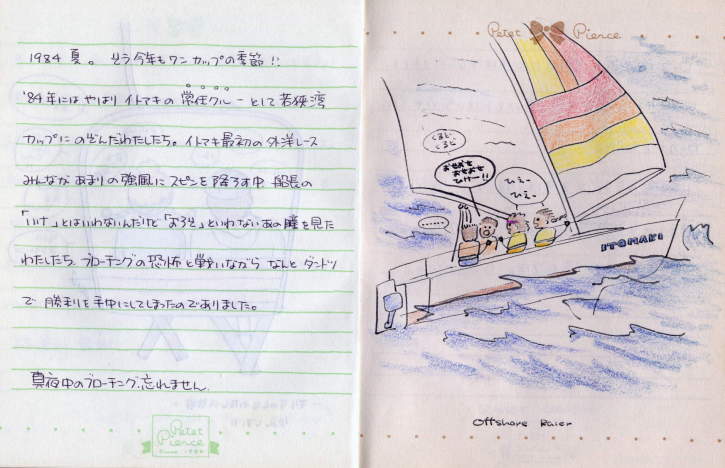 1984 夏。 そう今年もワンカップの季節!!
'84年にはやはりイトマキの常任クルーとして若狭湾
カップにのぞんだわたしたち。イトマキ最初の外洋レース
みんながあまりの強風にスピンを降ろす中 船長の
「いけ」とはいわないんだけど「おろせ」といわないあの瞳を見た
わたしたち。ブローチングの恐怖と戦いながら なんと ダントツ
で 勝利を手中にしてしまったのでありました。
真夜中のブローチング、忘れません
Petet
Pierce
Petet Pierce
おせおせ
おせおせ
ひけー!!
ひぇー
ひぇー
……
ITOMAKI
Offshore Racer